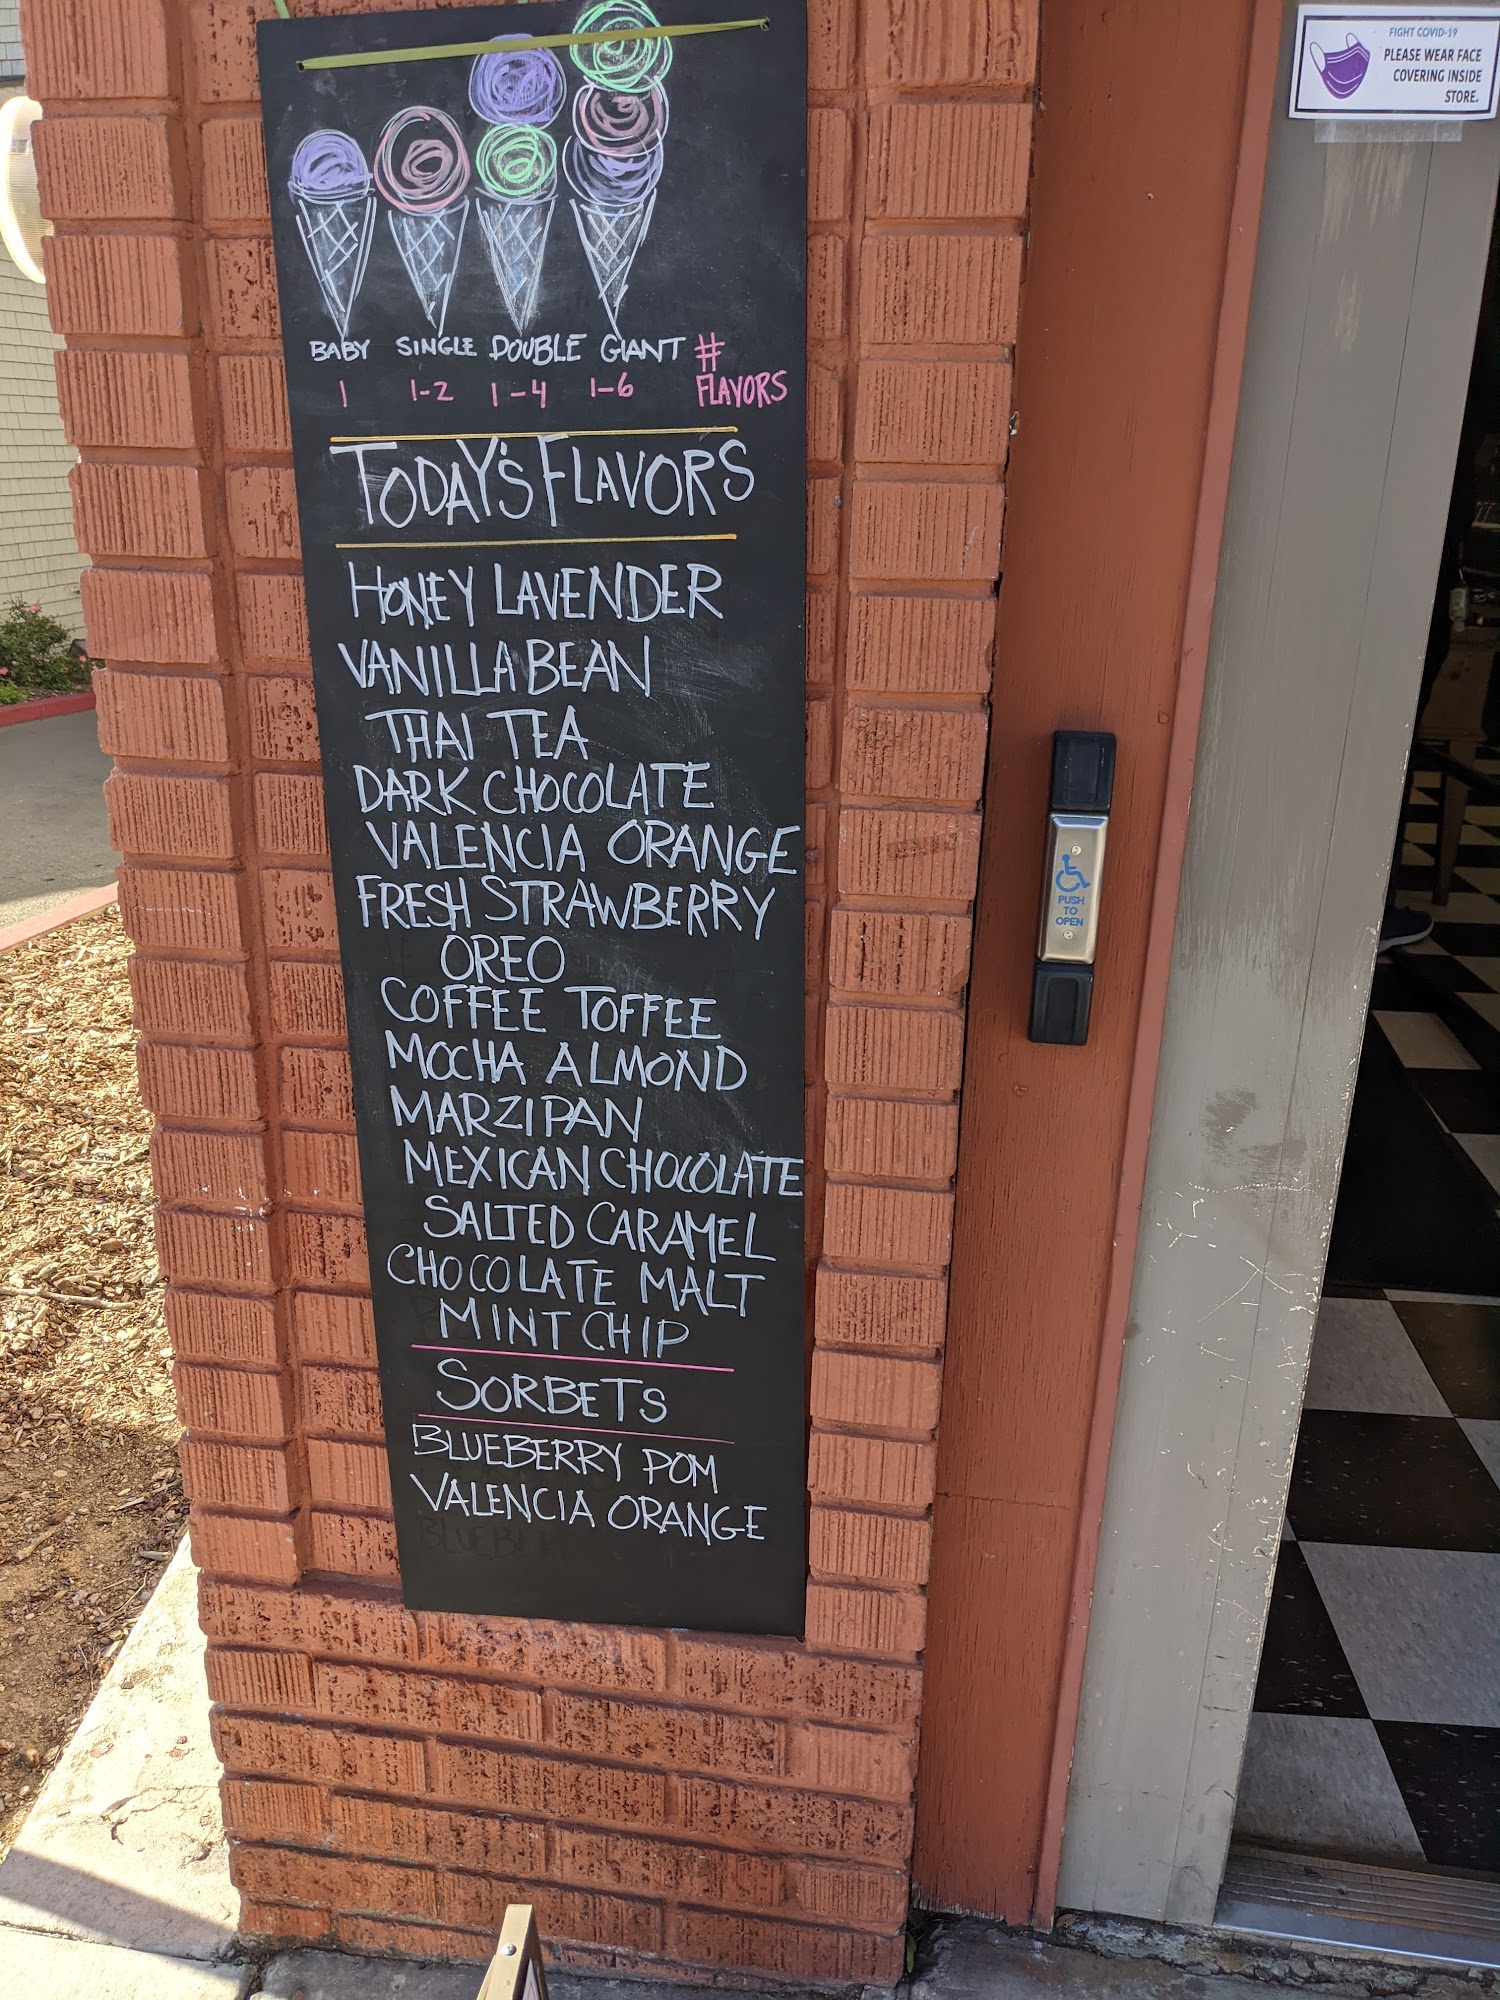 BABY SINGLE DOUBLE GIANT #
1 1-2 1-4 1-6 FLAVORS
TODAY'S FLAVORS
HONEY LAVENDER
VANILLA BEAN
THAI TEA
DARK CHOCOLATE
VALENCIA ORANGE
FRESH STRAWBERRY
OREO
COFFEE TOFFEE
MOCHA ALMOND
MARZIPAN
MEXICAN CHOCOLATE
SALTED CARAMEL
CHOCOLATE MALT
MINT CHIP
SORBETS
BLUEBERRY POM
VALENCIA ORANGE
FIGHT COVID-19
PLEASE WEAR FACE
COVERING INSIDE
STORE.
PUSH
TO
OPEN